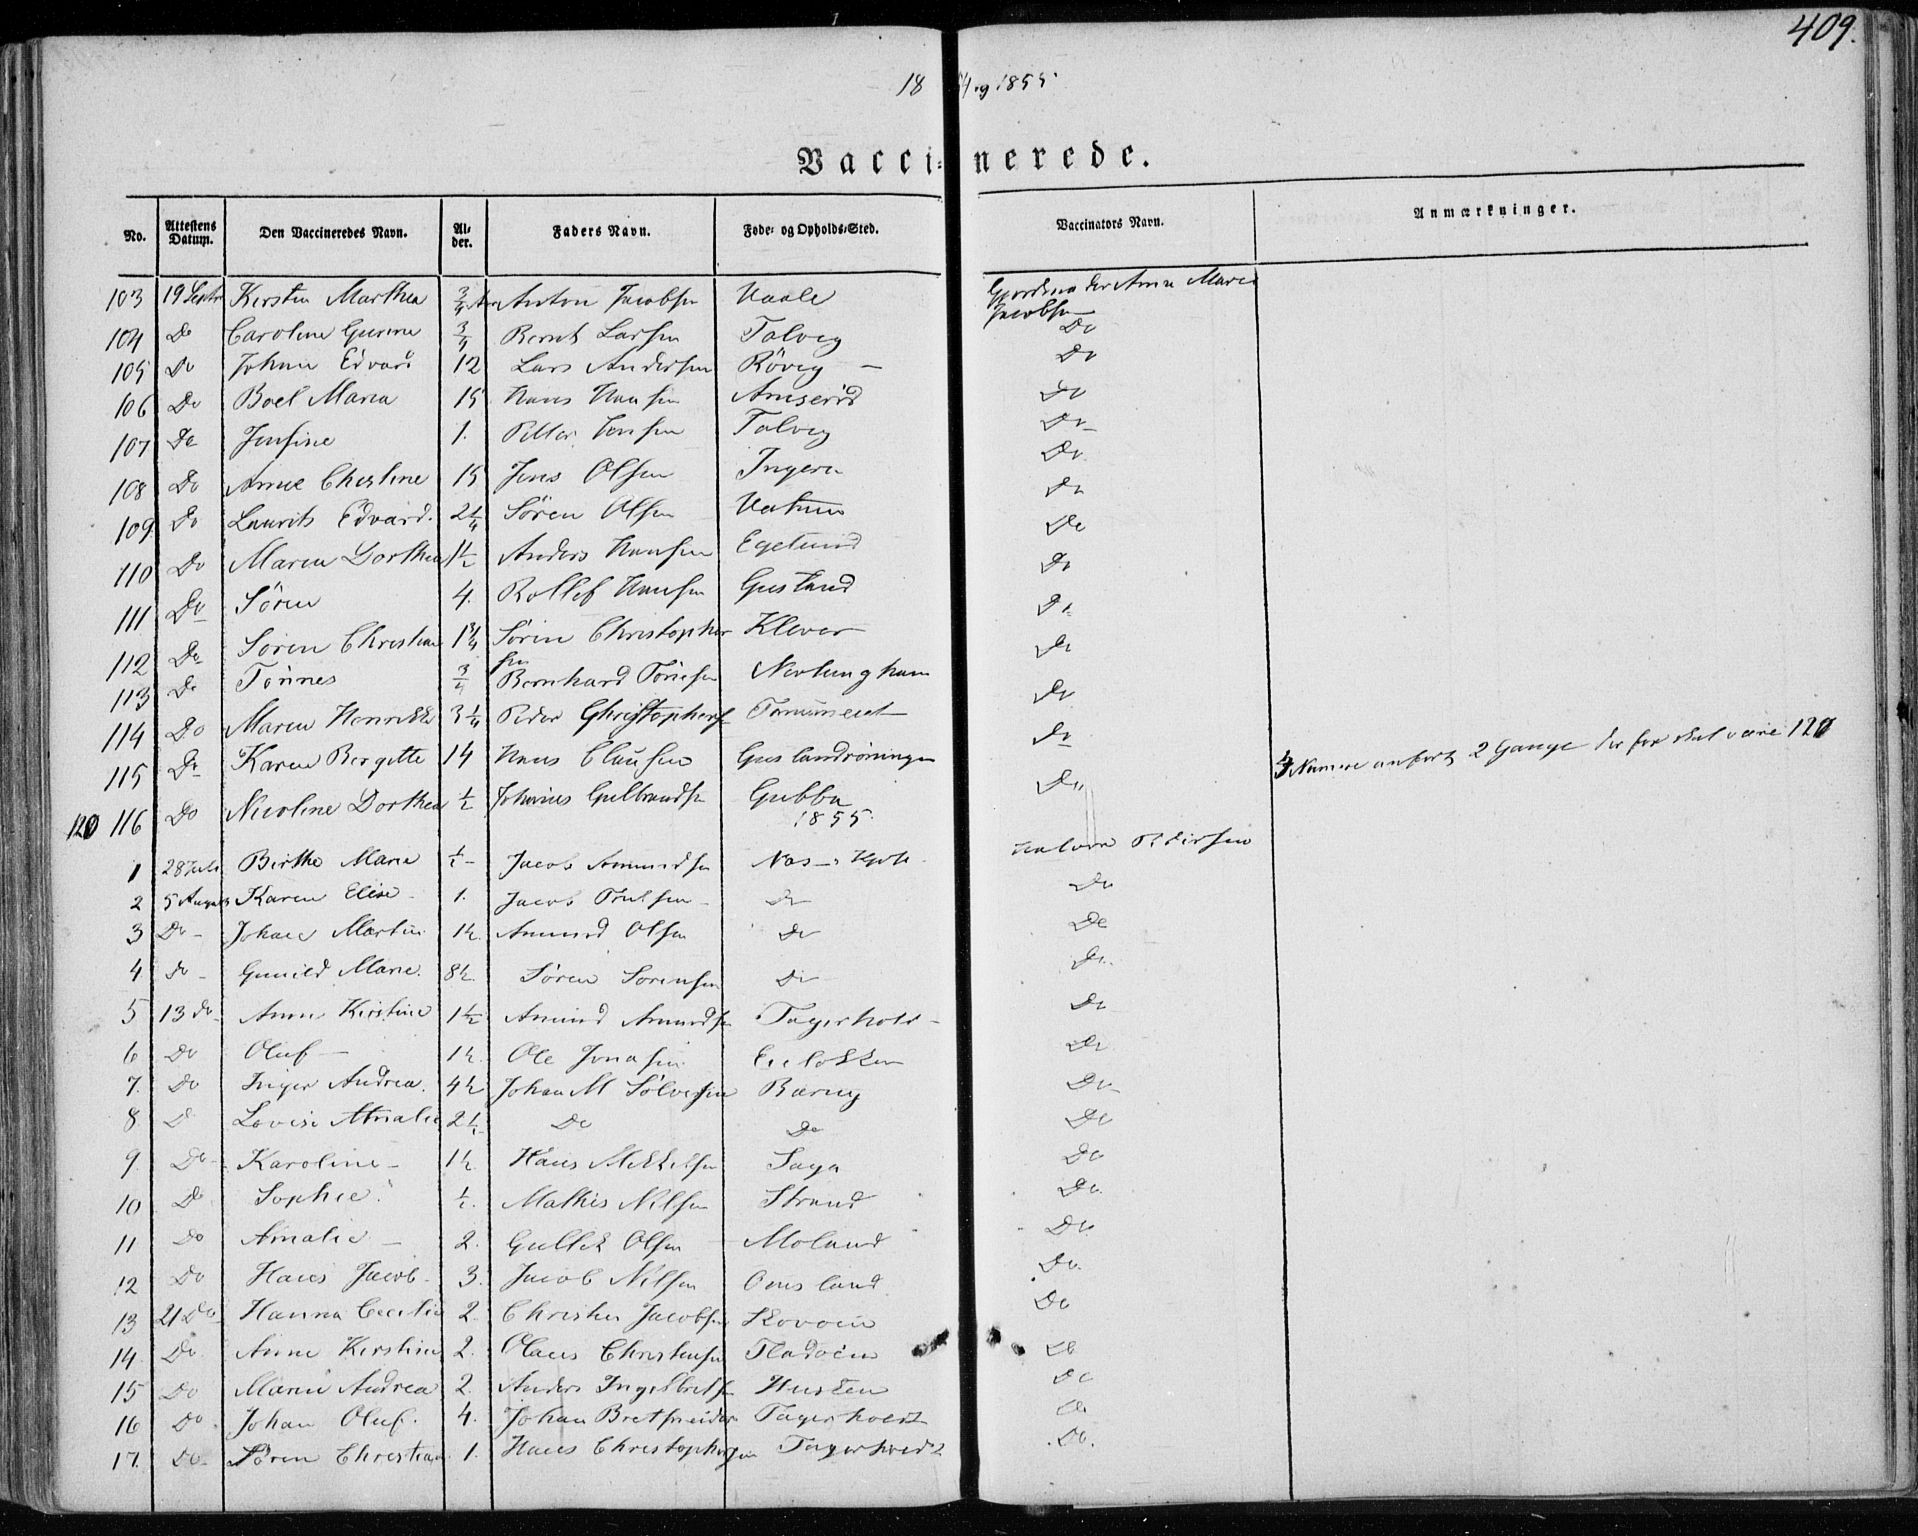 409.
18 54 og 1855
Vaccinerede.
No. Attestens Datum. Den Vaccineredes Navn. Alder. Faders Navn. Føde- og Opholds-Sted. Vaccinators Navn. Anmærkninger.
103 19 Septr Kirsten Marthea 3/4 Aar Anton Jacobsen Vaale Gjordemoder Anne Marie Jacobsen
104 Do Caroline Gurine 3/4 Bernt Larsen Talvig Do
105 Do Johan Edvard 12 Lars Andersen Rövig Do
106 Do Boel Maria 15 Hans Hansen Amseröd Do
107 Do Jensine 1. Petter Jensen Talvig Do
108 Do Anne Christine 15 Jens Olsen Do
109 Do Laurits Edvard. 2 1/4 Sören Olsen Do
110 Do Maren Dorthea 1 1/2 Anders Hansen Egelund Do
111 Do Sören 4. Rollef Hansen Gusland Do
112 Do Sören Christian 1 3/4 Sören Christophersen Klever Do
113 Do Tönnes 3/4 Bernhard Tönnesen Nevlunghavn Do
114 Do Maren Henrikke 3 1/4 Peder Christophersen Do
115 Do Karen Bergitte 14 Hans Clausen Guslandröningen Do
120 116 Do Nicoline Dorthea 1/2 Johannes Gulbrandsen Gubba Do 4 Numere anfört 2 Gange derfor skal være 120
1855
1 28 Juli Birthe Marie 1/2 Jacob Amundsen Næs Halvor Pedersen
2 5 August Karen Elise 1. Jacob Trulsen Do Do
3 Do Johan Martin 1 1/2. Amund Olsen Do Do
4 Do Gunild Marie. 8 1/2. Sören Sörensen Do Do
5 13 Do Anne Kirstine 1 1/2 Amund Amundsen Tagerholt Do
6 Do Oluf 1 1/2. Ole Jonasen Do
7. Do Inger Andrea. 4 1/2 Johan M Sölvesen Barvig Do
8 D Lovise Amalie 2 1/2 Do Do Do
9. Do Karoline 1 1/2. Hans Mikkelsen Saga Do
10 Do Sophie. 1/2. Mathis Nilsen Strand Do
11 Do Amalie 2. Gullik Olsen Moland Do
12 Do Hans Jacob 3. Jacob Nilsen Omsland Do
13 21 Do Hanna Cecilie 2. Christen Jacobsen Skovöen Do
14. Do Anne Kirstine 2. Olaus Christensen Fladöen Do
15 Do Maren Andrea 2. Anders Ingelbretsen Husken Do
16 Do Johan Oluf. 4. Johan Bretsneider Tagerholt Do
17. Do Sören Christian 1. Hans Christophersen Tagerholt Do.